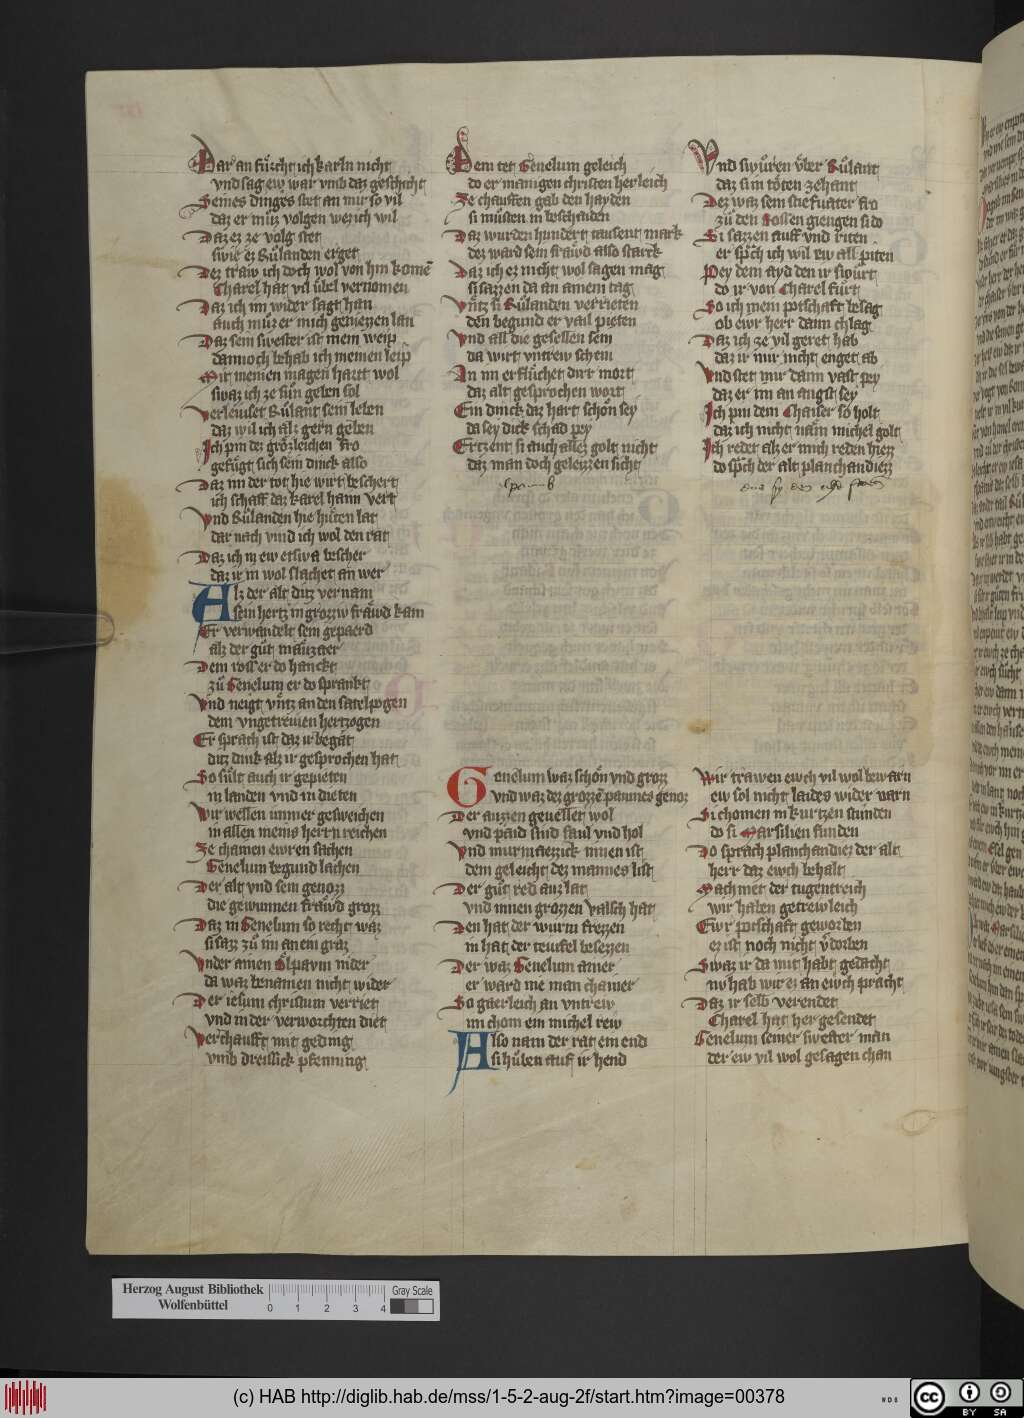 Dar an fürcht ich karln nicht
vnd sag ew war vmb daz geschicht
Seines dinges stet an mir so vil
daz er müz volgen wez ich wil
Daz ez ze volg stet
swie ez Růlanden erget
Dez traw ich doch wol von hin komē
Charel hat vil übel vernomen
Daz ich im wider sagt han
auch můz er mich geniezzen lan
Daz sein swester ist mein weip
dannoch behab ich meinen leip
Mit meinen magen hartt wol
swaz ich ze sůn geben sol
verleuset Růlant sein leben
daz wil ich alz gern geben
Ich pin dez grözleichen fro
gefůgt sich sein dinck also
Daz im der tot hie wirt beschert
ich schaff daz karel hann vert
vnd Růlanden hie hüten lat
dar nach vind ich wol den rat
Daz ich in ew etswa bescher
daz ir in wol slachet an wer
Alz der alt ditz vernam
sein hertz in grozzw fräwd kam
Er verwandelt sein gepaerd
alz der gůt mauzaer
Dem ross er do hanckt
zů Genelum er do sprankt
vnd neigt vntz an den satelpogen
dem vngetrewen hertzogen
Er sprach ist daz ir begät
ditz dink alz ir gesprochen hat
So sült auch ir gepieten
in landen vnd in dieten
Wir wellen immer gesweichen
in allen meins herrn reichen
Ze chainen ewren sachen
Genelum begund lachen
Der alt vnd sein genozz
die gewunnen fräwd grozz
Daz in Genelum so recht waz
si sazz zů im an ein graz
vnder ainen ölpavm nider
da waz benamen nicht wider
Der iesum christum verriet
vnd in der verworchten diet
Verchaufft mit geding
vmb dreissick pfenning
Dem tet Genelum geleich
do er manigen christen herleich
Ze chauffen gab den hayden
si müsten in beschaiden
Daz wurden hundert tausent mark
dez ward sein fräwd also starck
Daz ich ez nicht wol sagen mag
si sazzen da an ainem tag
vntz si Růlanden verrieten
den begund er vail pieten
vnd all die gesellen sein
da wirt vntrew schein
An im erflüchet dirr mort
daz alt gesprochen wort
Ein dinck daz hart schön sey
da sey dick schad pey
Ertzent si auch allez golt nicht
daz man doch geleizzen sicht
Genelum waz schön vnd grozz
vnd waz dez grozzē paumes genoz
Der auzzen geuellet wol
vnd paid sind faul vnd hol
vnd wurmaezzick innen ist
dem geleicht dez mannes list
Der gůt red auz lat
vnd innen grozzen valsch hat
Den hat der wurm frezzen
in hat der teuffel besezzen
Der waz Genelum ainer
er ward nie man chainer
So gaerleich an vntrew
im chom ein michel rew
Also nam der rat ein end
si hůben auf ir hend
Vnd swůren vber Růlant
daz si in töten zehant
Dez waz sein stiefuater fro
zů den Rossen giengen si do
Si sazzen auff vnd riten
er sp̄ch ich wil ew all piten
Pey dem ayd den ir swůrt
do ir von Charel fůrt
So ich mein potschaft besag
ob ewr herr dann chlag
Daz ich ze vil geret hab
daz ir mir nicht enget ab
vnd stet mir dann vast pey
daz er im an angst sey
Ich pin dem Chaiser so holt
daz ich nicht naim michel golt
Ich redet alz er mich reden hiezz
do sp̄ch der alt planchandiezz
Wir trawen ewch vil wol bewarn
ew sol nicht laides wider varn
Si chomen in kurtzen stunden
do si Marsilien funden
Do sprach planchandiez der alt
herr daz ewch behalt
Machmet der tugentreich
wir haben getrewleich
Ewr potschaft geworben
ez ist noch nicht v̄dorben
Swaz ir da mit habt gedacht
nv hab wir ez an ewch pracht
Daz ir selb verendet
Charel hat her gesendet
Genelum seiner swester man
der ew vil wol gesagen chan
Herzog August Bibliothek
Wolfenbüttel
0 1 2 3 4
Gray Scale
(c) HAB http://diglib.hab.de/mss/1-5-2-aug-2f/start.htm?image=00378
WDB
cc BY SA